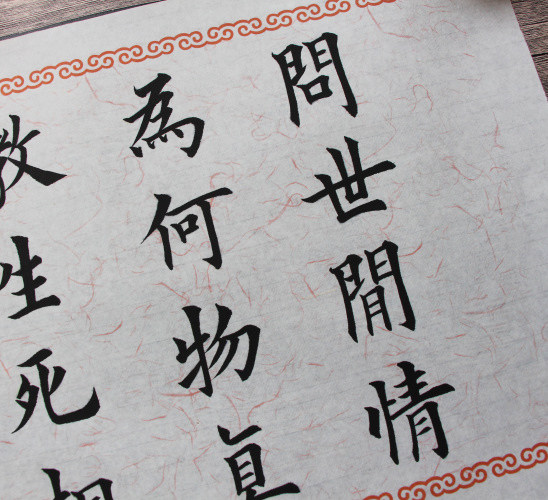 問世閒情
為何物直
教生死相